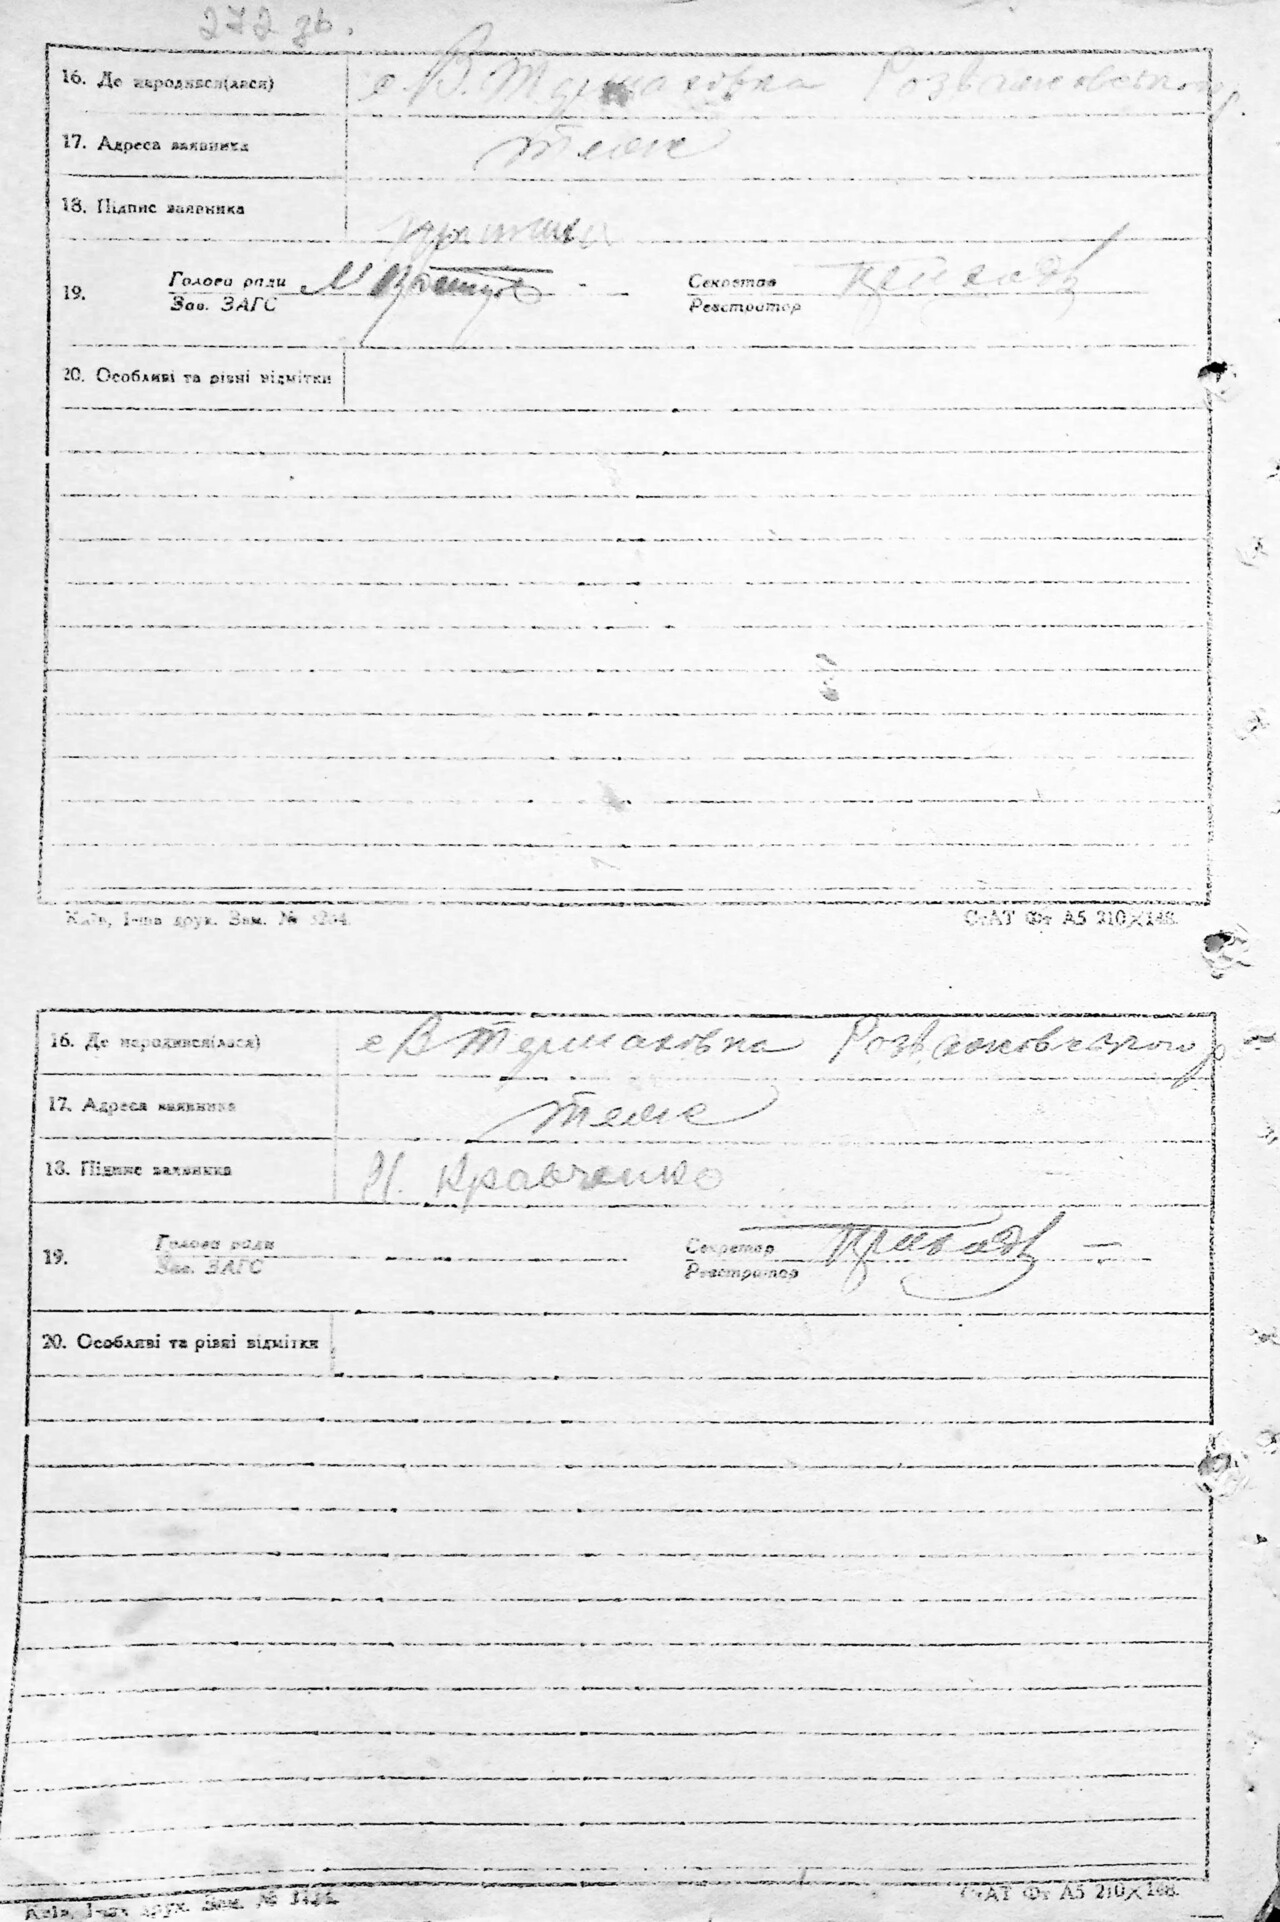 272 зв.
16. Де народився(лася) с. В. Термаховка Розважовського р.
17. Адреса заявника теж
18. Підпис заявника
19. Голова ради Секретар
Зав. ЗАГС Реєстратор
20. Особливі та рівні відмітки
Київ, 1-ша друк. Зам. № 3204. СтАТ Фт А5 210×148.
16. Де народився(лася) с В Термаховка Розважовського р.
17. Адреса заявника теж
18. Підпис заявника Н. Кравченко
19. Голова ради Секретар
Зав. ЗАГС Реєстратор
20. Особливі та рівні відмітки
Київ, 1-ша друк. Зам. № СтАТ Фт А5 210×148.